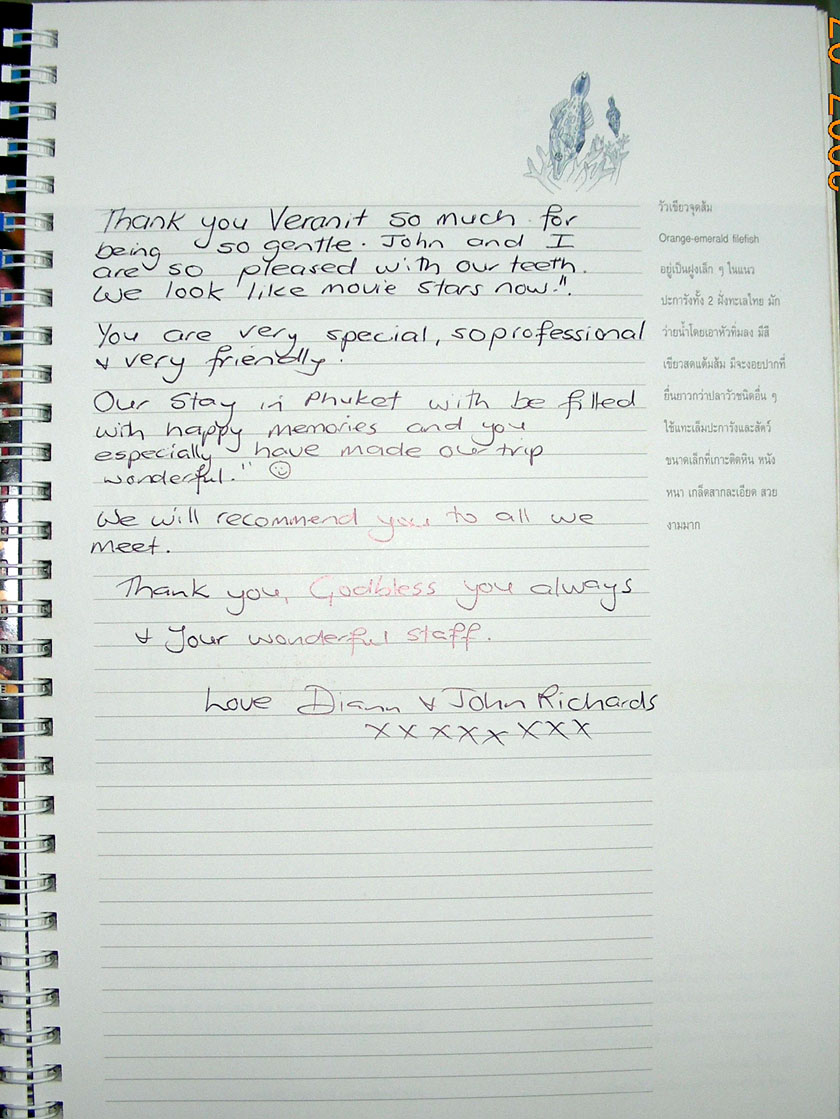 Thank you Veranit so much for
being so gentle. John and I
are so pleased with our teeth.
We look like movie stars now.!!
You are very special, so professional
& very friendly.
Our stay in Phuket with be filled
with happy memories and you
especially have made our trip
wonderful.!! ☺
We will recommend you to all we
meet.
Thank you, Godbless you always
& your wonderful staff.
Love Diann & John Richards
x x x x x x x x
วัวเขียวจุดส้ม
Orange-emerald filefish
อยู่เป็นฝูงเล็ก ๆ ในแนว
ปะการังทั้ง 2 ฝั่งทะเลไทย มัก
ว่ายน้ำโดยเอาหัวทิ่มลง มีสี
เขียวสดแต้มส้ม มีจะงอยปากที่
ยื่นยาวกว่าปลาวัวชนิดอื่น ๆ
ใช้แทะเล็มปะการังและสัตว์
ขนาดเล็กที่เกาะติดหิน หนัง
หนา เกล็ดสากละเอียด สวย
งามมาก